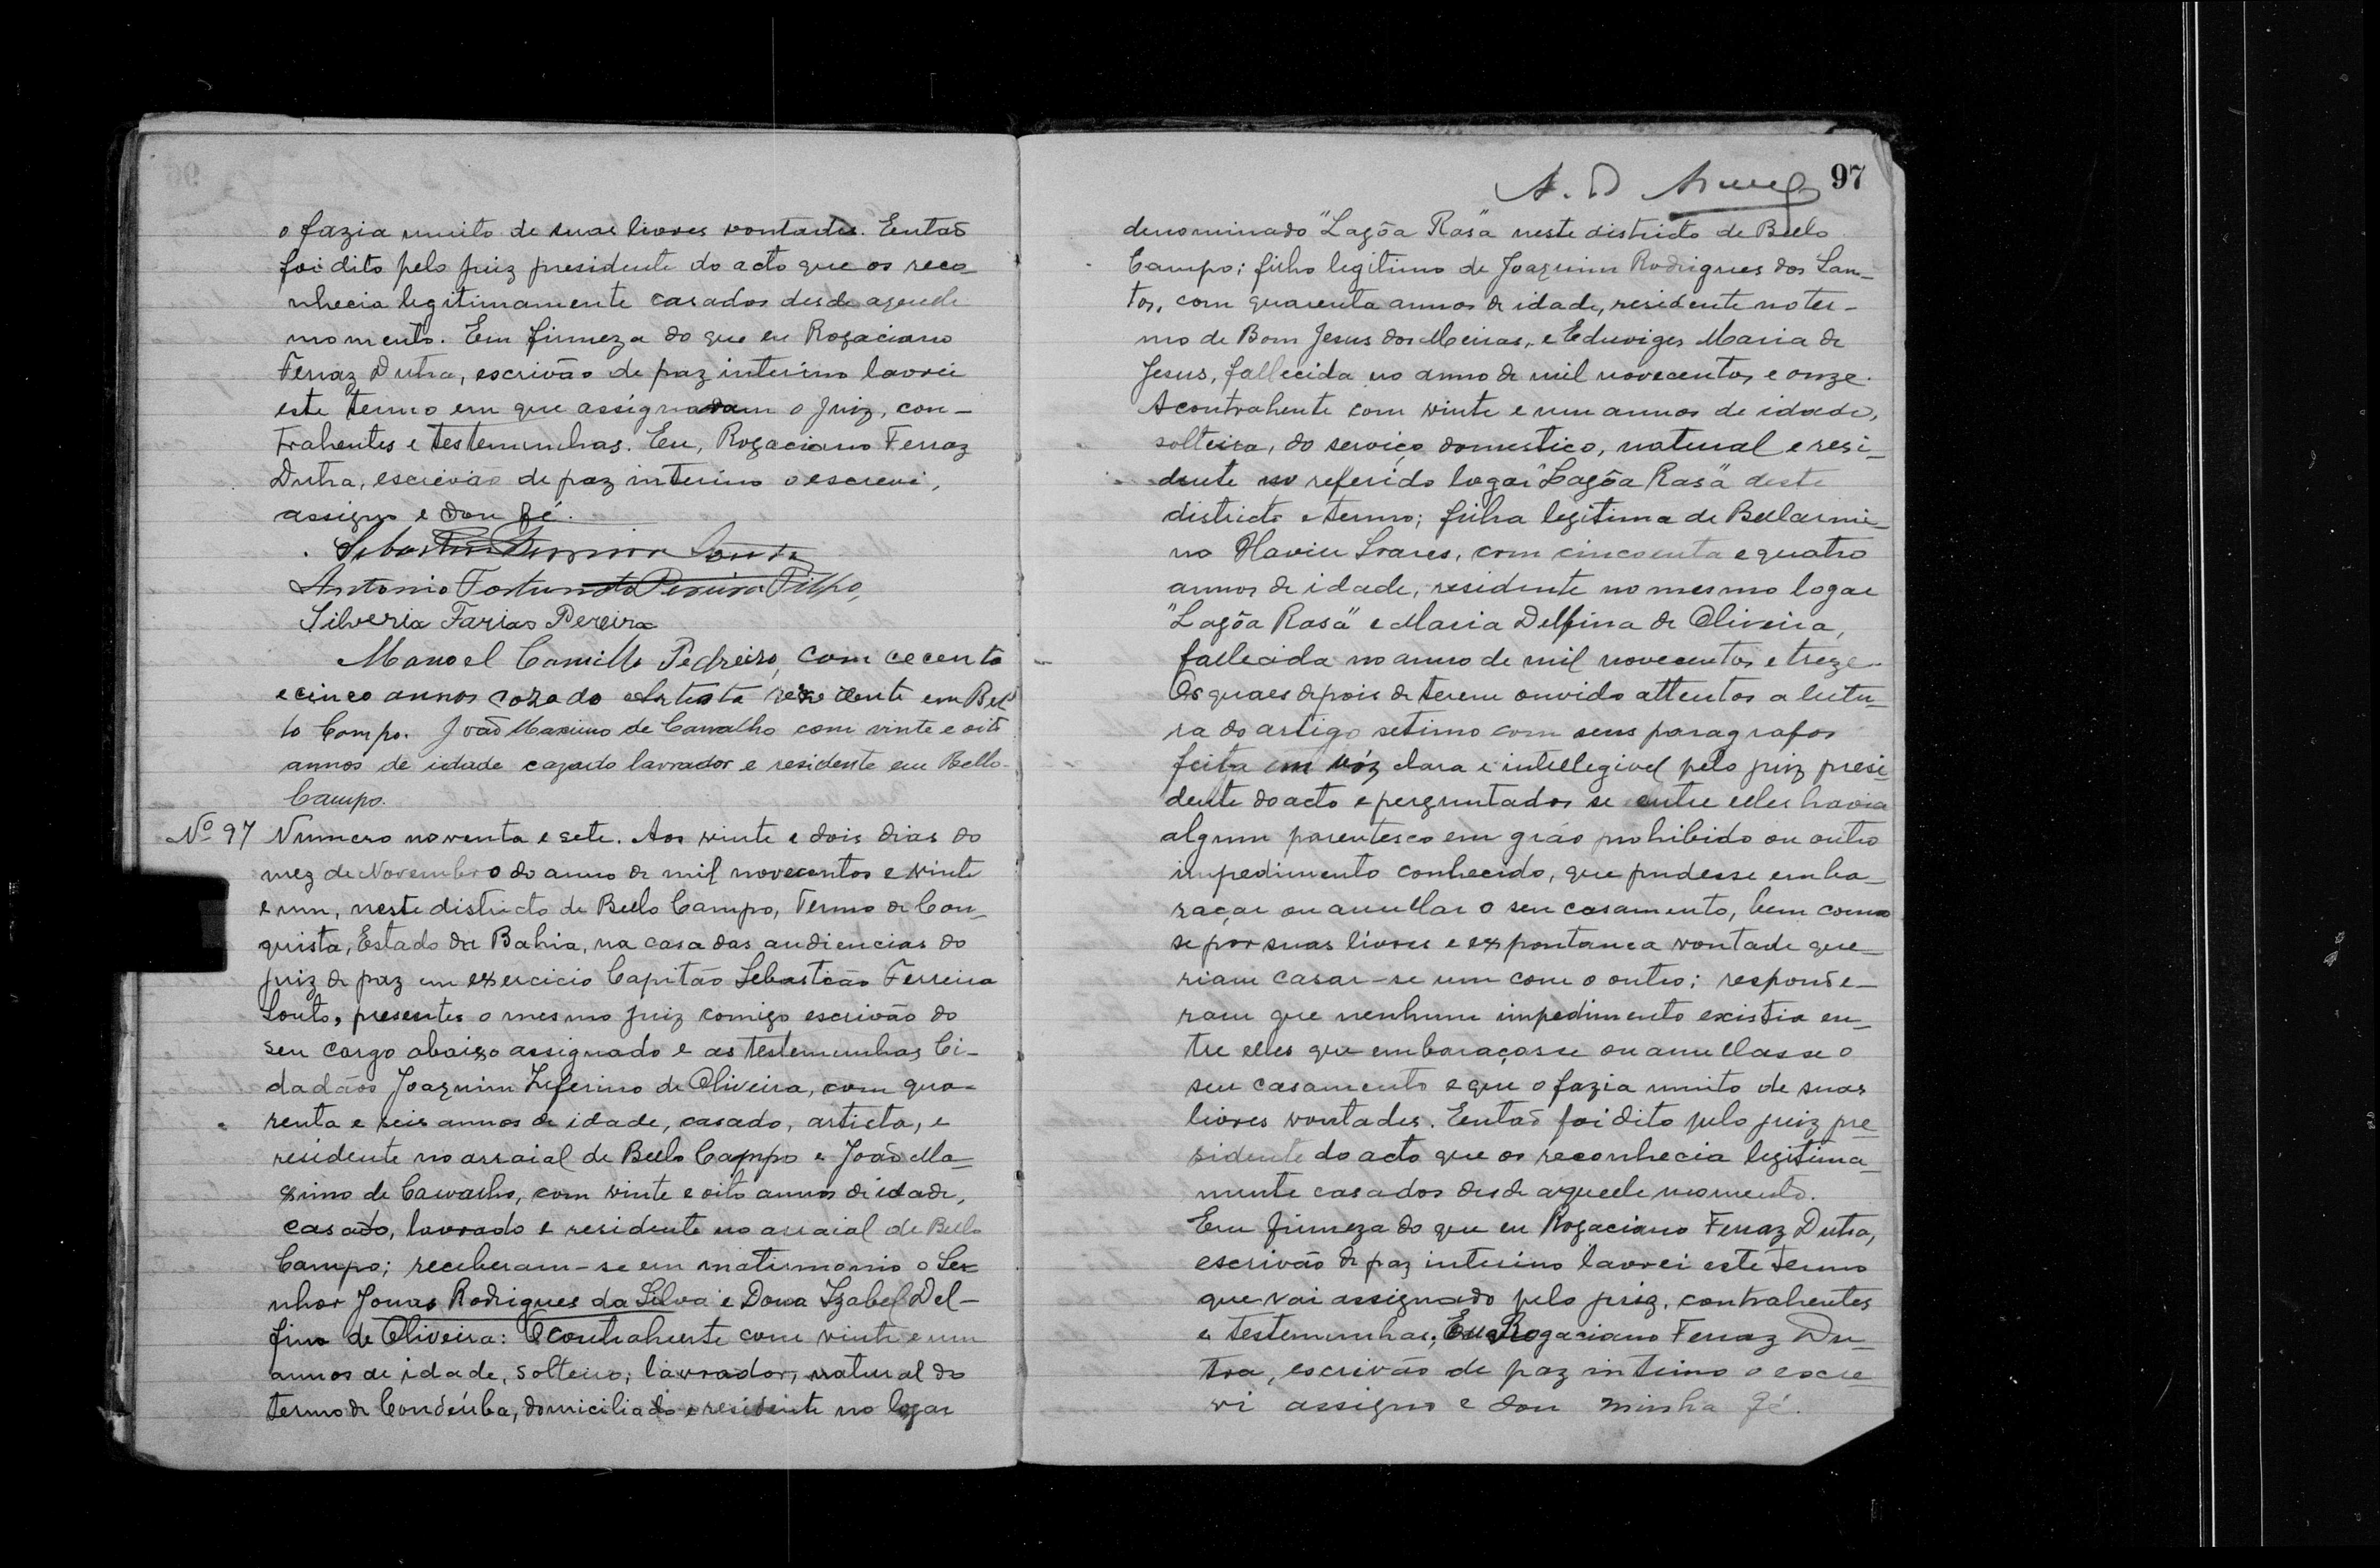 o fazia muito de suas livres vontades. Entaõ
foi dito pelo juiz presidente do acto que os reco_
nhecia legitimamente casados desde aquelle
momento. Em firmeza do que eu Rogaciano
Ferraz Dutra, escrivão de paz interino lavrei
este termo em que assignaram o juiz, con_
trahentes e testemunhas. Eu, Rogaciano Ferraz
Dutra, escrivão de paz interino o escrevi,
assigno e dou fé.
Sebastião Ferreira Souto
Antonio Fortunato Pereira Filho,
Silveria Farias Pereira
Manoel Camillo Pedreiro, com cecenta
e cinco annos cazado Artista rezidente em Bel
lo Campo. Joaõ Maximo de Carvalho com vinte e oito
annos de idade cazado lavrador e residente em Bello
Campo.
Nº 97 Numero noventa e sete. Aos vinte e dois dias do
mez de Novembro do anno de mil novecentos e vinte
e um, neste districto de Bello Campo, Termo de Con_
quista, Estado da Bahia, na casa das audiencias do
juiz de paz em exercicio Capitão Sebastião Ferreira
Souto, presentes o mesmo juiz comigo escrivão do
seu cargo abaixo assignado e as testemunhas Ci_
dadãos Joaquim Zeferino de Oliveira, com qua_
renta e seis annos de idade, casado, artista, e
residente no arraial de Bello Campo e Joaõ Ma_
ximo de Carvalho, com vinte e oito annos de idade,
casado, lavrado e residente no arraial de Bello
Campo; receberam-se em matrimonio o Se_
nhor Jonas Rodrigues da Silva e Dona Izabel Del_
fino de Oliveira: O contrahente com vinte e um
annos de idade, solteiro, lavrador, natural do
termo de Condeúba, domiciliado e residente no logar
97
denominado "Lagôa Rasa" neste districto de Bello
Campo; filho legitimo de Joaquim Rodrigues dos San_
tos, com quarenta annos de idade, residente no ter_
mo de Bom Jesus dos Meiras, e Eduviges Maria de
Jesus, fallecida no anno de mil novecentos e onze.
A contrahente com vinte e um annos de idade,
solteira, do serviço domestico, natural e resi_
dente no referido logar "Lagôa Rasa" deste
districto e termo; filha legitima de Bellarmi_
no Soares, com cincoenta e quatro
annos de idade, residente no mesmo logar
"Lagôa Rasa" e Maria Delfina de Oliveira,
fallecida no anno de mil novecentos e treze.
Os quaes depois de terem ouvido attentos a leitu_
ra do artigo setimo com seus paragrafos
feita em vóz clara e intellegivel pelo juiz presi_
dente do acto e perguntados se entre elles havia
algum parentesco em gráo prohibido ou outro
impedimento conhecido, que pudesse emba_
raçar ou anullar o seu casamento, bem como
se por suas livres e expontanea vontade que_
riam casar-se um com o outro; responde_
ram que nenhum impedimento existia en_
tre elles que embaraçasse ou anullasse o
seu casamento e que o fazia muito de suas
livres vontades. Entaõ foi dito pelo juiz pre_
sidente do acto que os reconhecia legitima_
mente casados desde aquelle momento.
Em firmeza do que eu Rogaciano Ferraz Dutra,
escrivão de paz interino lavrei este termo
que vai assignado pelo juiz, contrahentes
e testemunhas; Eu Rogaciano Ferraz Du_
tra, escrivão de paz interino o escre_
vi assigno e dou minha fé.